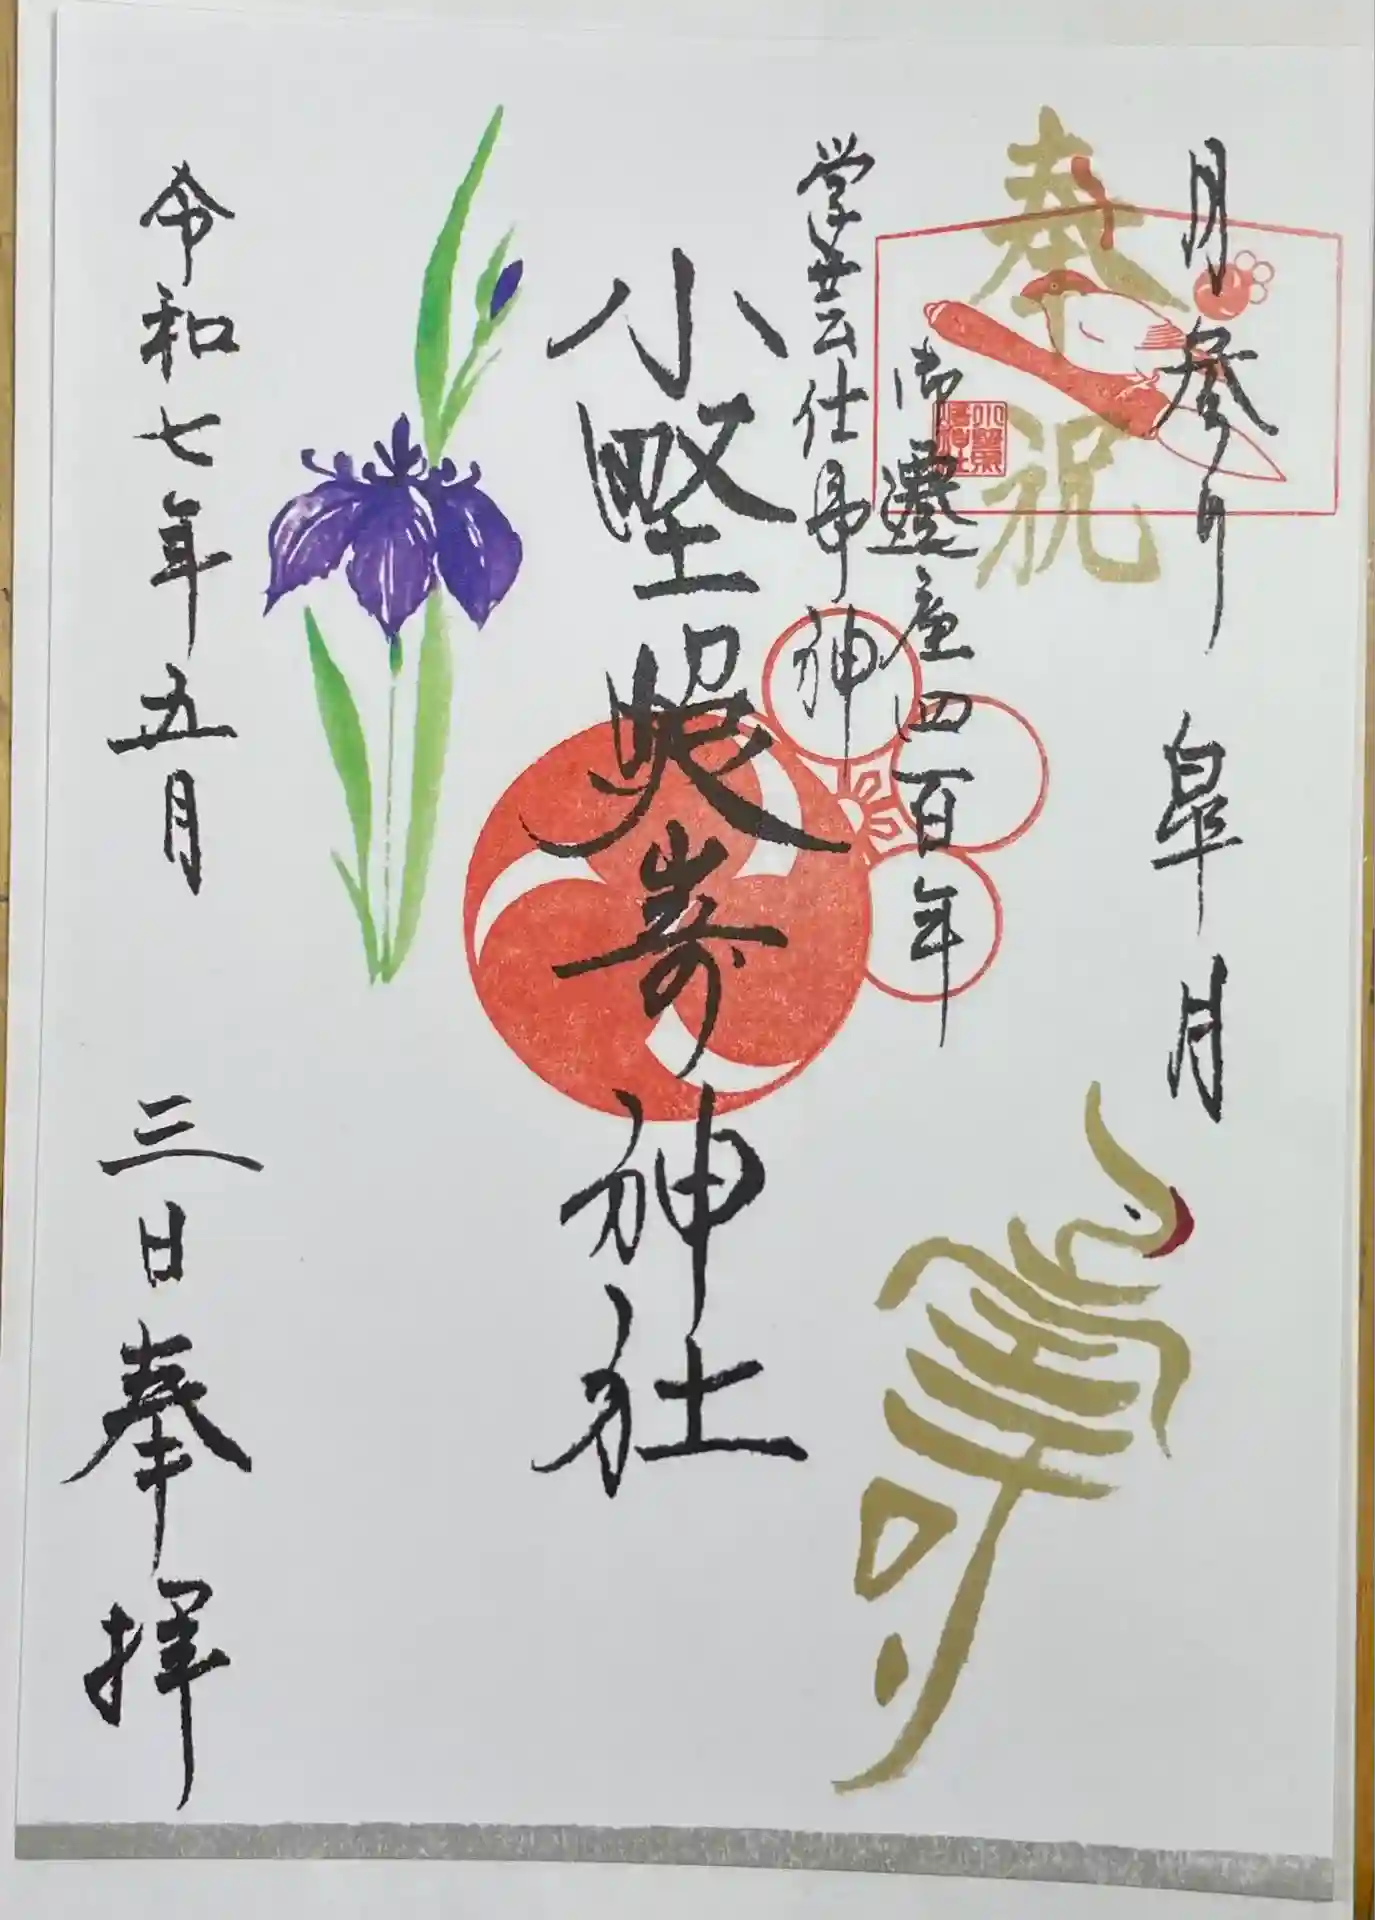 月参り 皐月
奉祝
寿
御遷座四百年
学芸仕事神
小野照崎神社
令和七年五月 三日奉拝